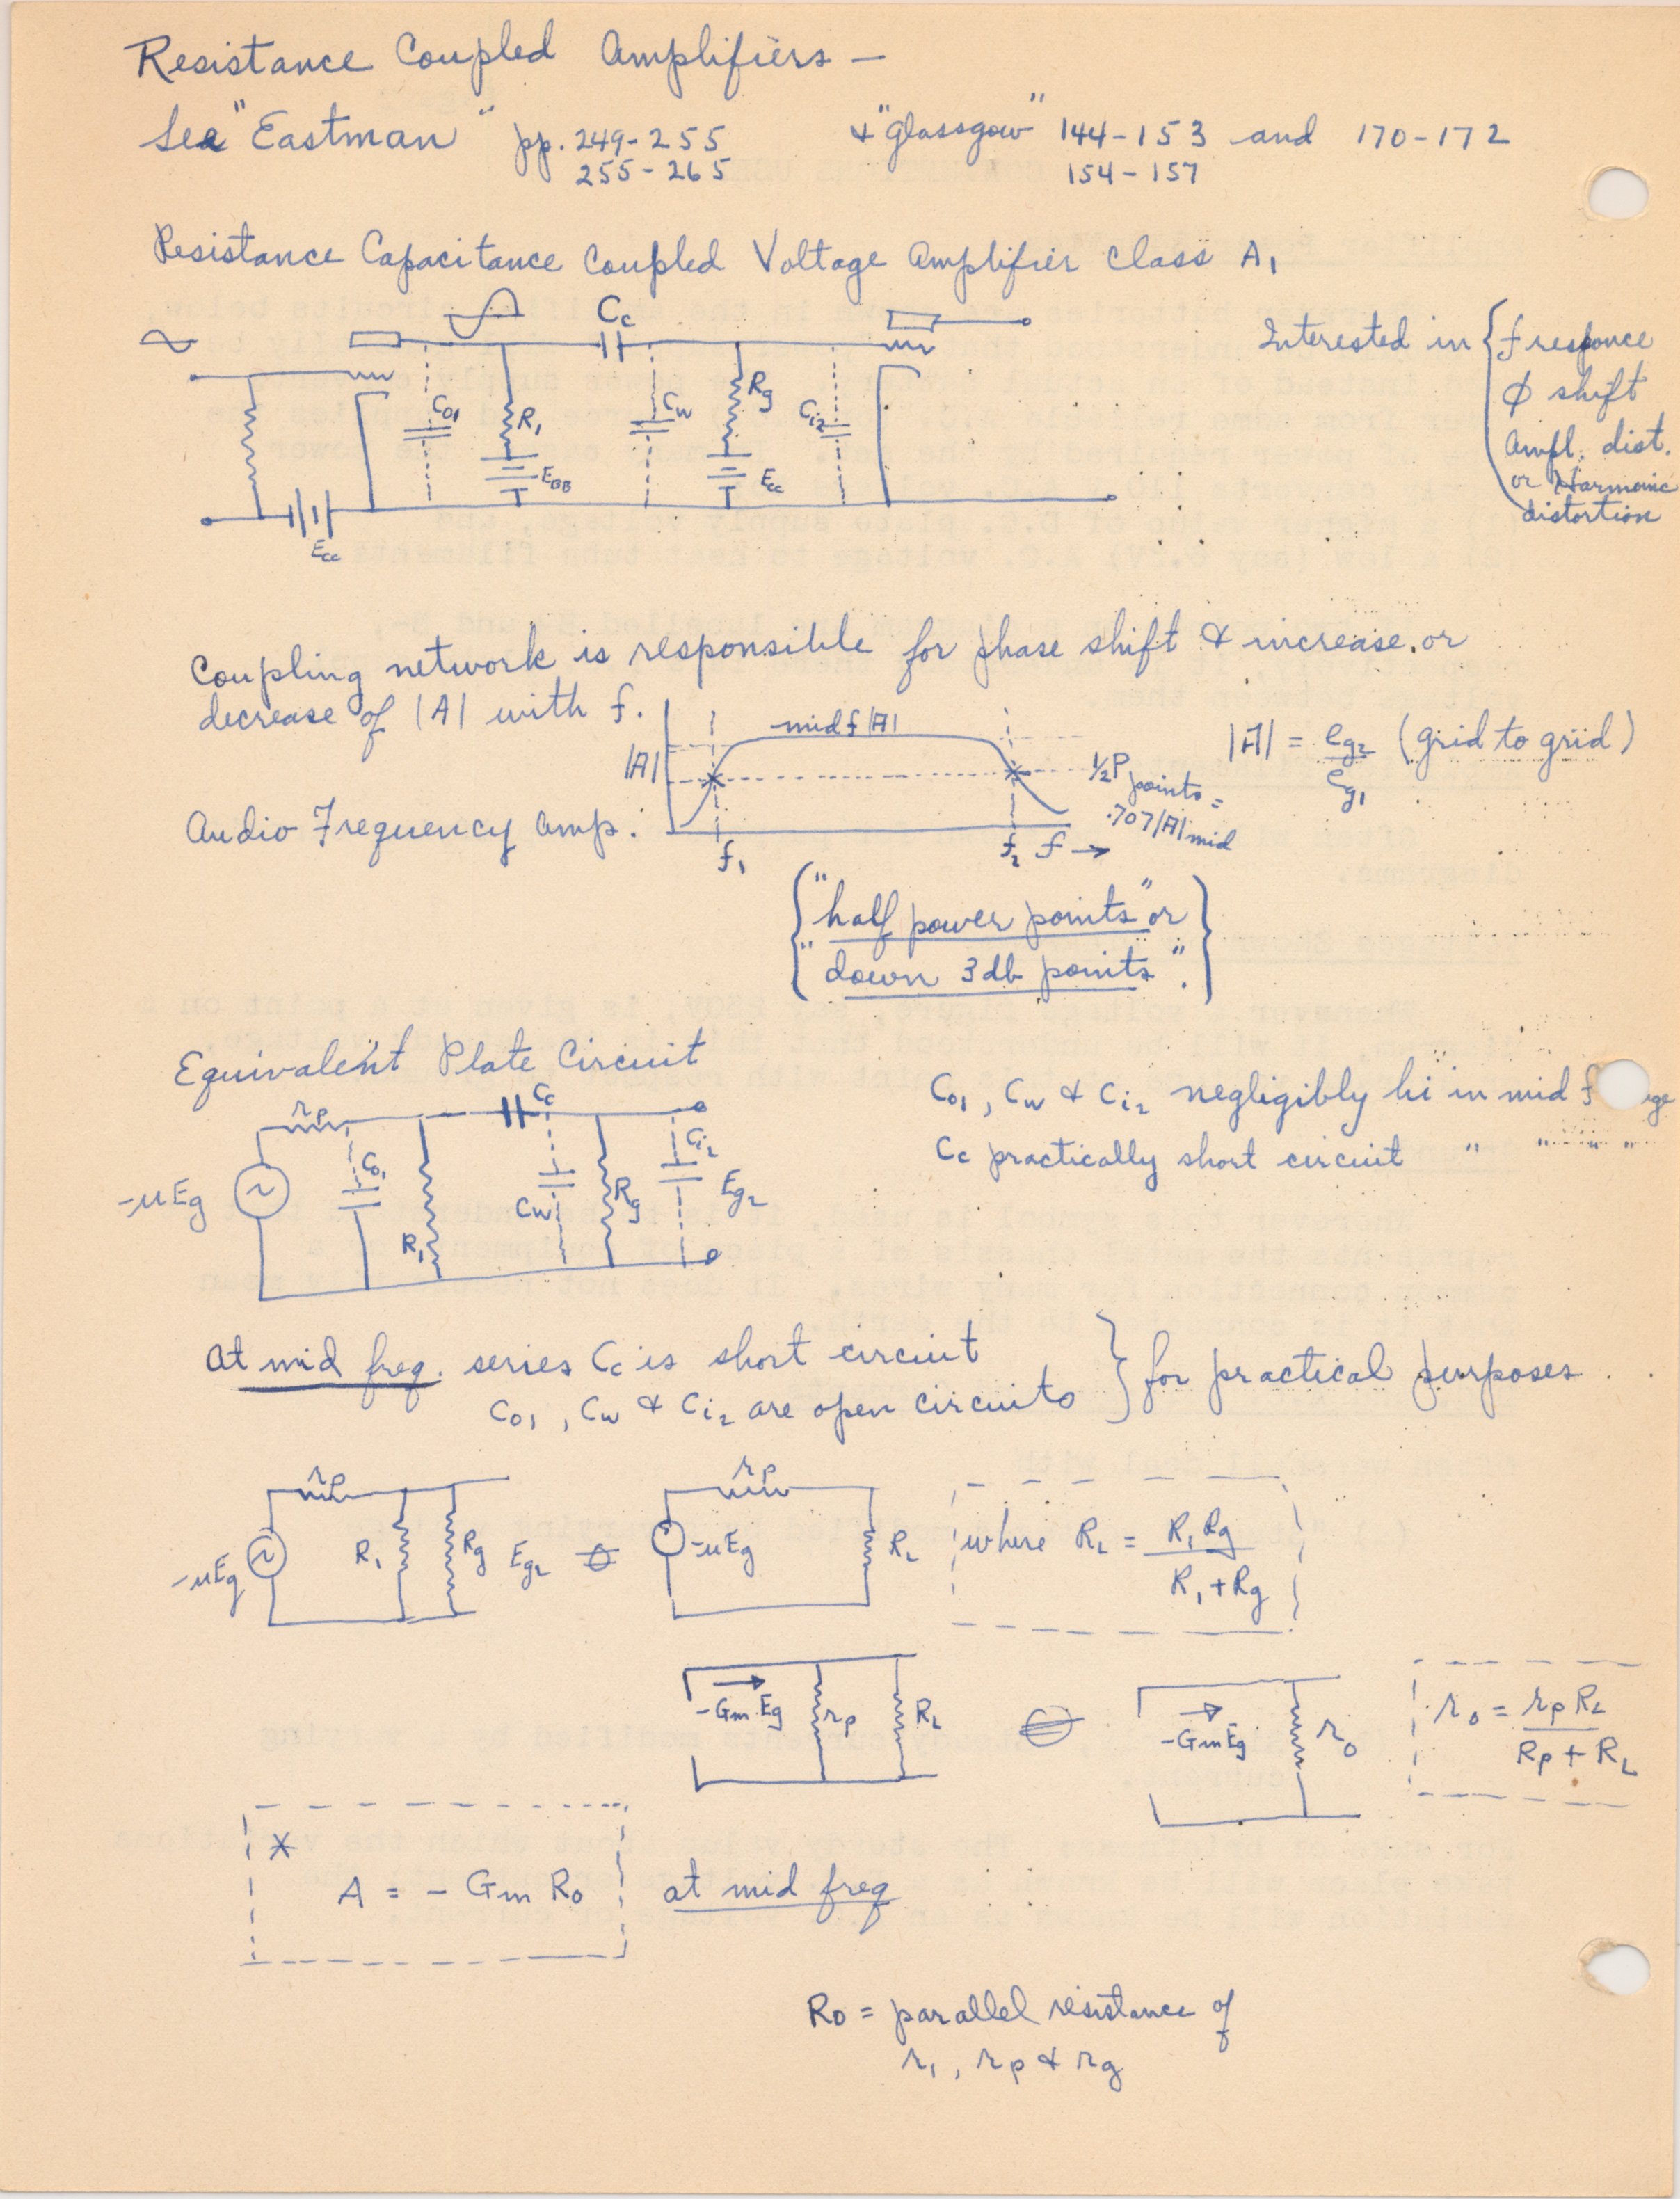 Resistance Coupled Amplifiers —
See "Eastman" pp. 249-255 & "Glassgow" 144-153 and 170-172
255-265 154-157
Resistance Capacitance Coupled Voltage Amplifier Class A₁
Cc
Co₁ R₁ Cw Rg Ci₂
EBB Ecc
Ecc
Interested in { f responce
φ shift
Ampl. dist.
or Harmonic
distortion
Coupling network is responsible for phase shift & increase or
decrease of |A| with f.
mid f |A|
|A|
½P points =
.707|A|mid
f₁ f₂ f →
|A| = eg₂/eg₁ (grid to grid)
Audio Frequency amp.
{"half power points" or
"down 3db points".}
Equivalent Plate Circuit
rp Cc
-μEg Co₁ R₁ Cw Rg Ci₂ Eg₂
Co₁, Cw & Ci₂ negligibly hi in mid f
Cc practically short circuit " " " "
At mid freq. series Cc is short circuit
Co₁, Cw & Ci₂ are open circuits } for practical purposes
rp rp
-μEg R₁ Rg Eg₂ -μEg RL
where RL = R₁Rg / R₁+Rg
-Gm Eg rp RL
-GmEg ro
ro = rp RL / Rp + RL
* A = - Gm Ro at mid freq
Ro = parallel resistance of
r₁, rp & rg